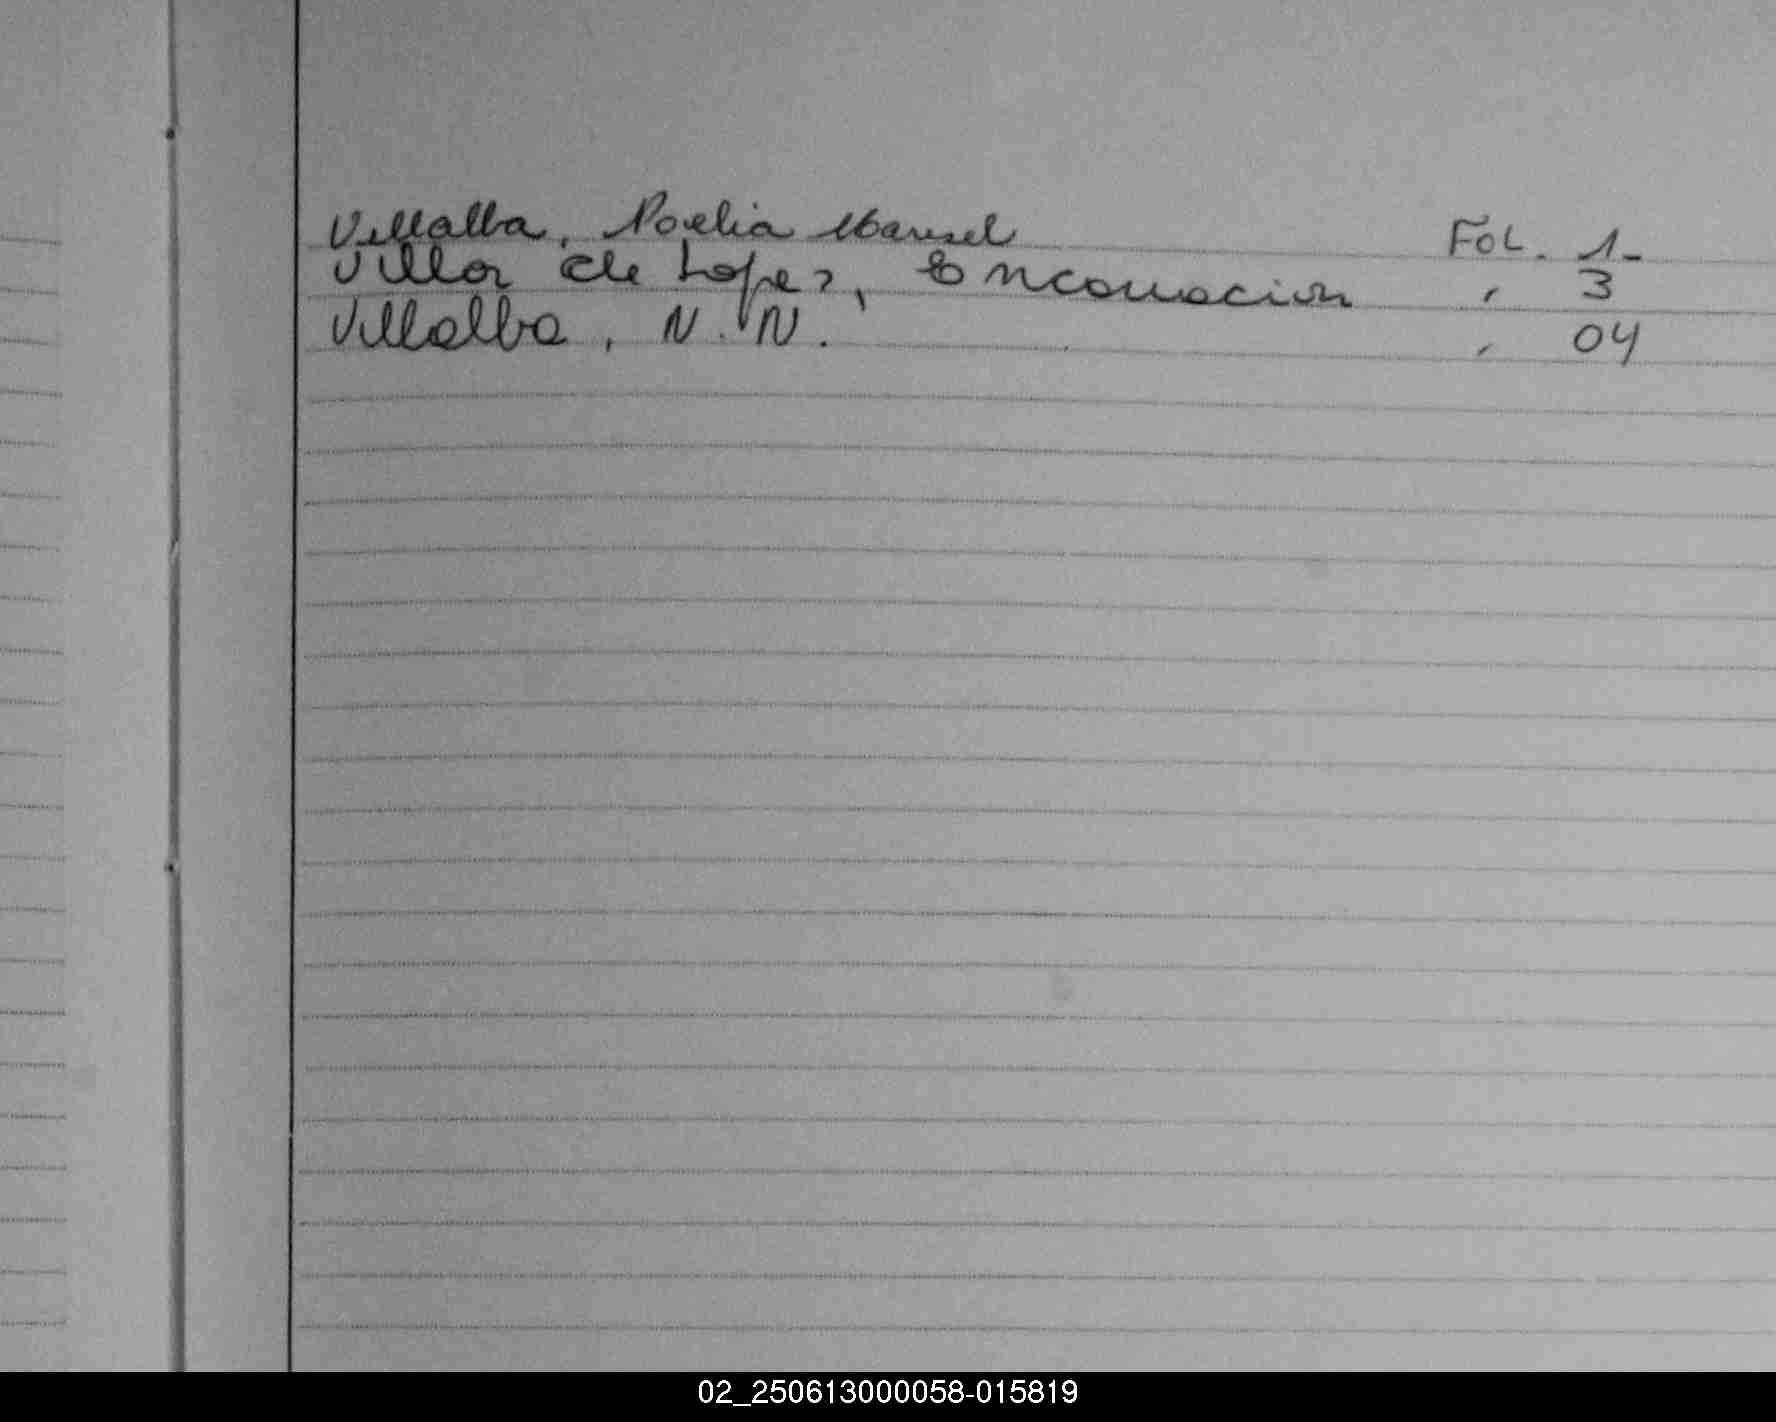 Villalba, Noelia Marisel FOL. 1-
Villar de Lopez, Encarnacion " 3
Villalba, N.N. " 04
02_250613000058-015819